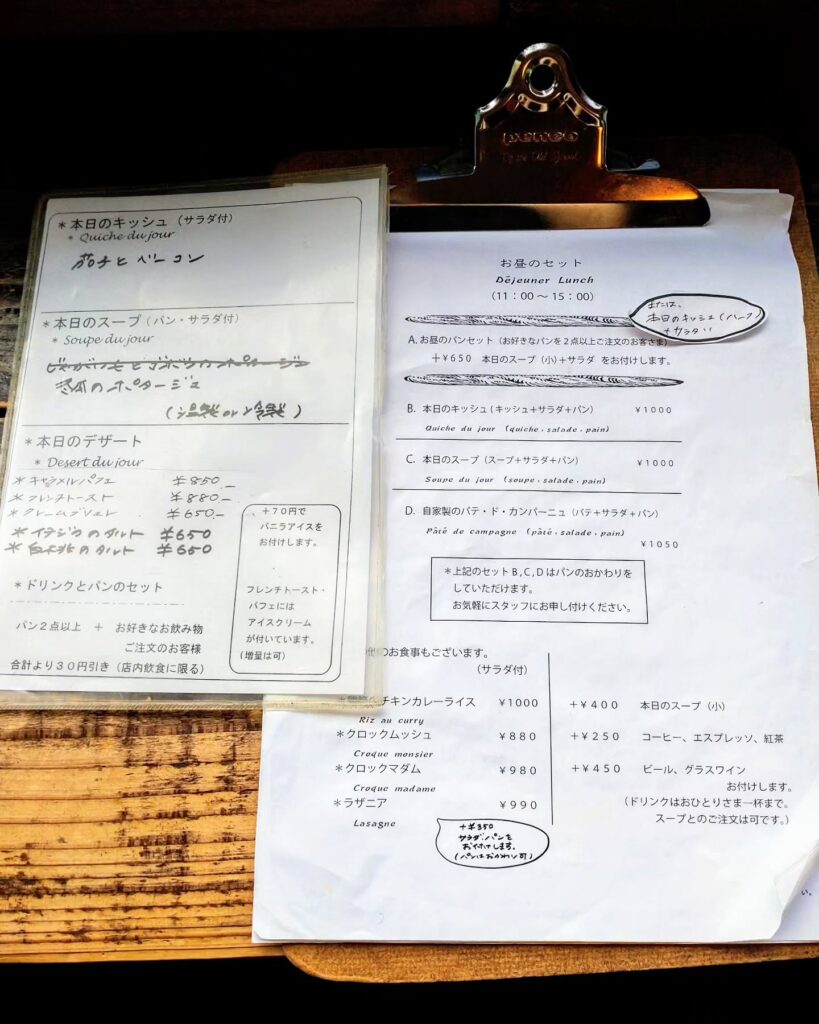 ＊本日のキッシュ（サラダ付）
＊Quiche du jour
茄子とベーコン
＊本日のスープ（パン・サラダ付）
＊Soupe du jour
じゃがいもとゴボウのポタージュ
のポタージュ
（温製or冷製）
＊本日のデザート
＊Desert du jour
＊キャラメルパフェ ￥850.－
＊フレンチトースト ￥880.－
＊クレームブリュレ ￥650.－
＊イチジクのタルト ￥650
＊白桃のタルト ￥650
＋７０円で
バニラアイスを
お付けします。
フレンチトースト・
パフェには
アイスクリーム
が付いています。
（増量は可）
＊ドリンクとパンのセット
パン２点以上　＋　お好きなお飲み物
ご注文のお客様
合計より３０円引き（店内飲食に限る）
PENCO
お昼のセット
Déjeuner Lunch
（11：00～15：00）
または、
本日のキッシュ（ハーフ）
＋サラダ
A. お昼のパンセット（お好きなパンを２点以上ご注文のお客さま）
＋¥650　本日のスープ（小）＋サラダ をお付けします。
B. 本日のキッシュ（キッシュ＋サラダ＋パン） ¥1000
Quiche du jour (quiche、salade、pain)
C. 本日のスープ（スープ＋サラダ＋パン） ¥1000
Soupe du jour (soupe、salade、pain)
D. 自家製のパテ・ド・カンパーニュ（パテ＋サラダ＋パン）
Pâté de campagne (pâté、salade、pain)
¥1050
＊上記のセットB，C，Dはパンのおかわりを
していただけます。
お気軽にスタッフにお申し付けください。
のお食事もございます。
（サラダ付）
チキンカレーライス ¥1000
Riz au curry
＊クロックムッシュ ¥880
Croque monsier
＊クロックマダム ¥980
Croque madame
＊ラザニア ¥990
Lasagne
＋¥350
サラダ・パンを
お付けします。
（パンはおかわり可）
＋¥400　本日のスープ（小）
＋¥250　コーヒー、エスプレッソ、紅茶
＋¥450　ビール、グラスワイン
お付けします。
（ドリンクはおひとりさま一杯まで。
スープとのご注文は可です。）
い。